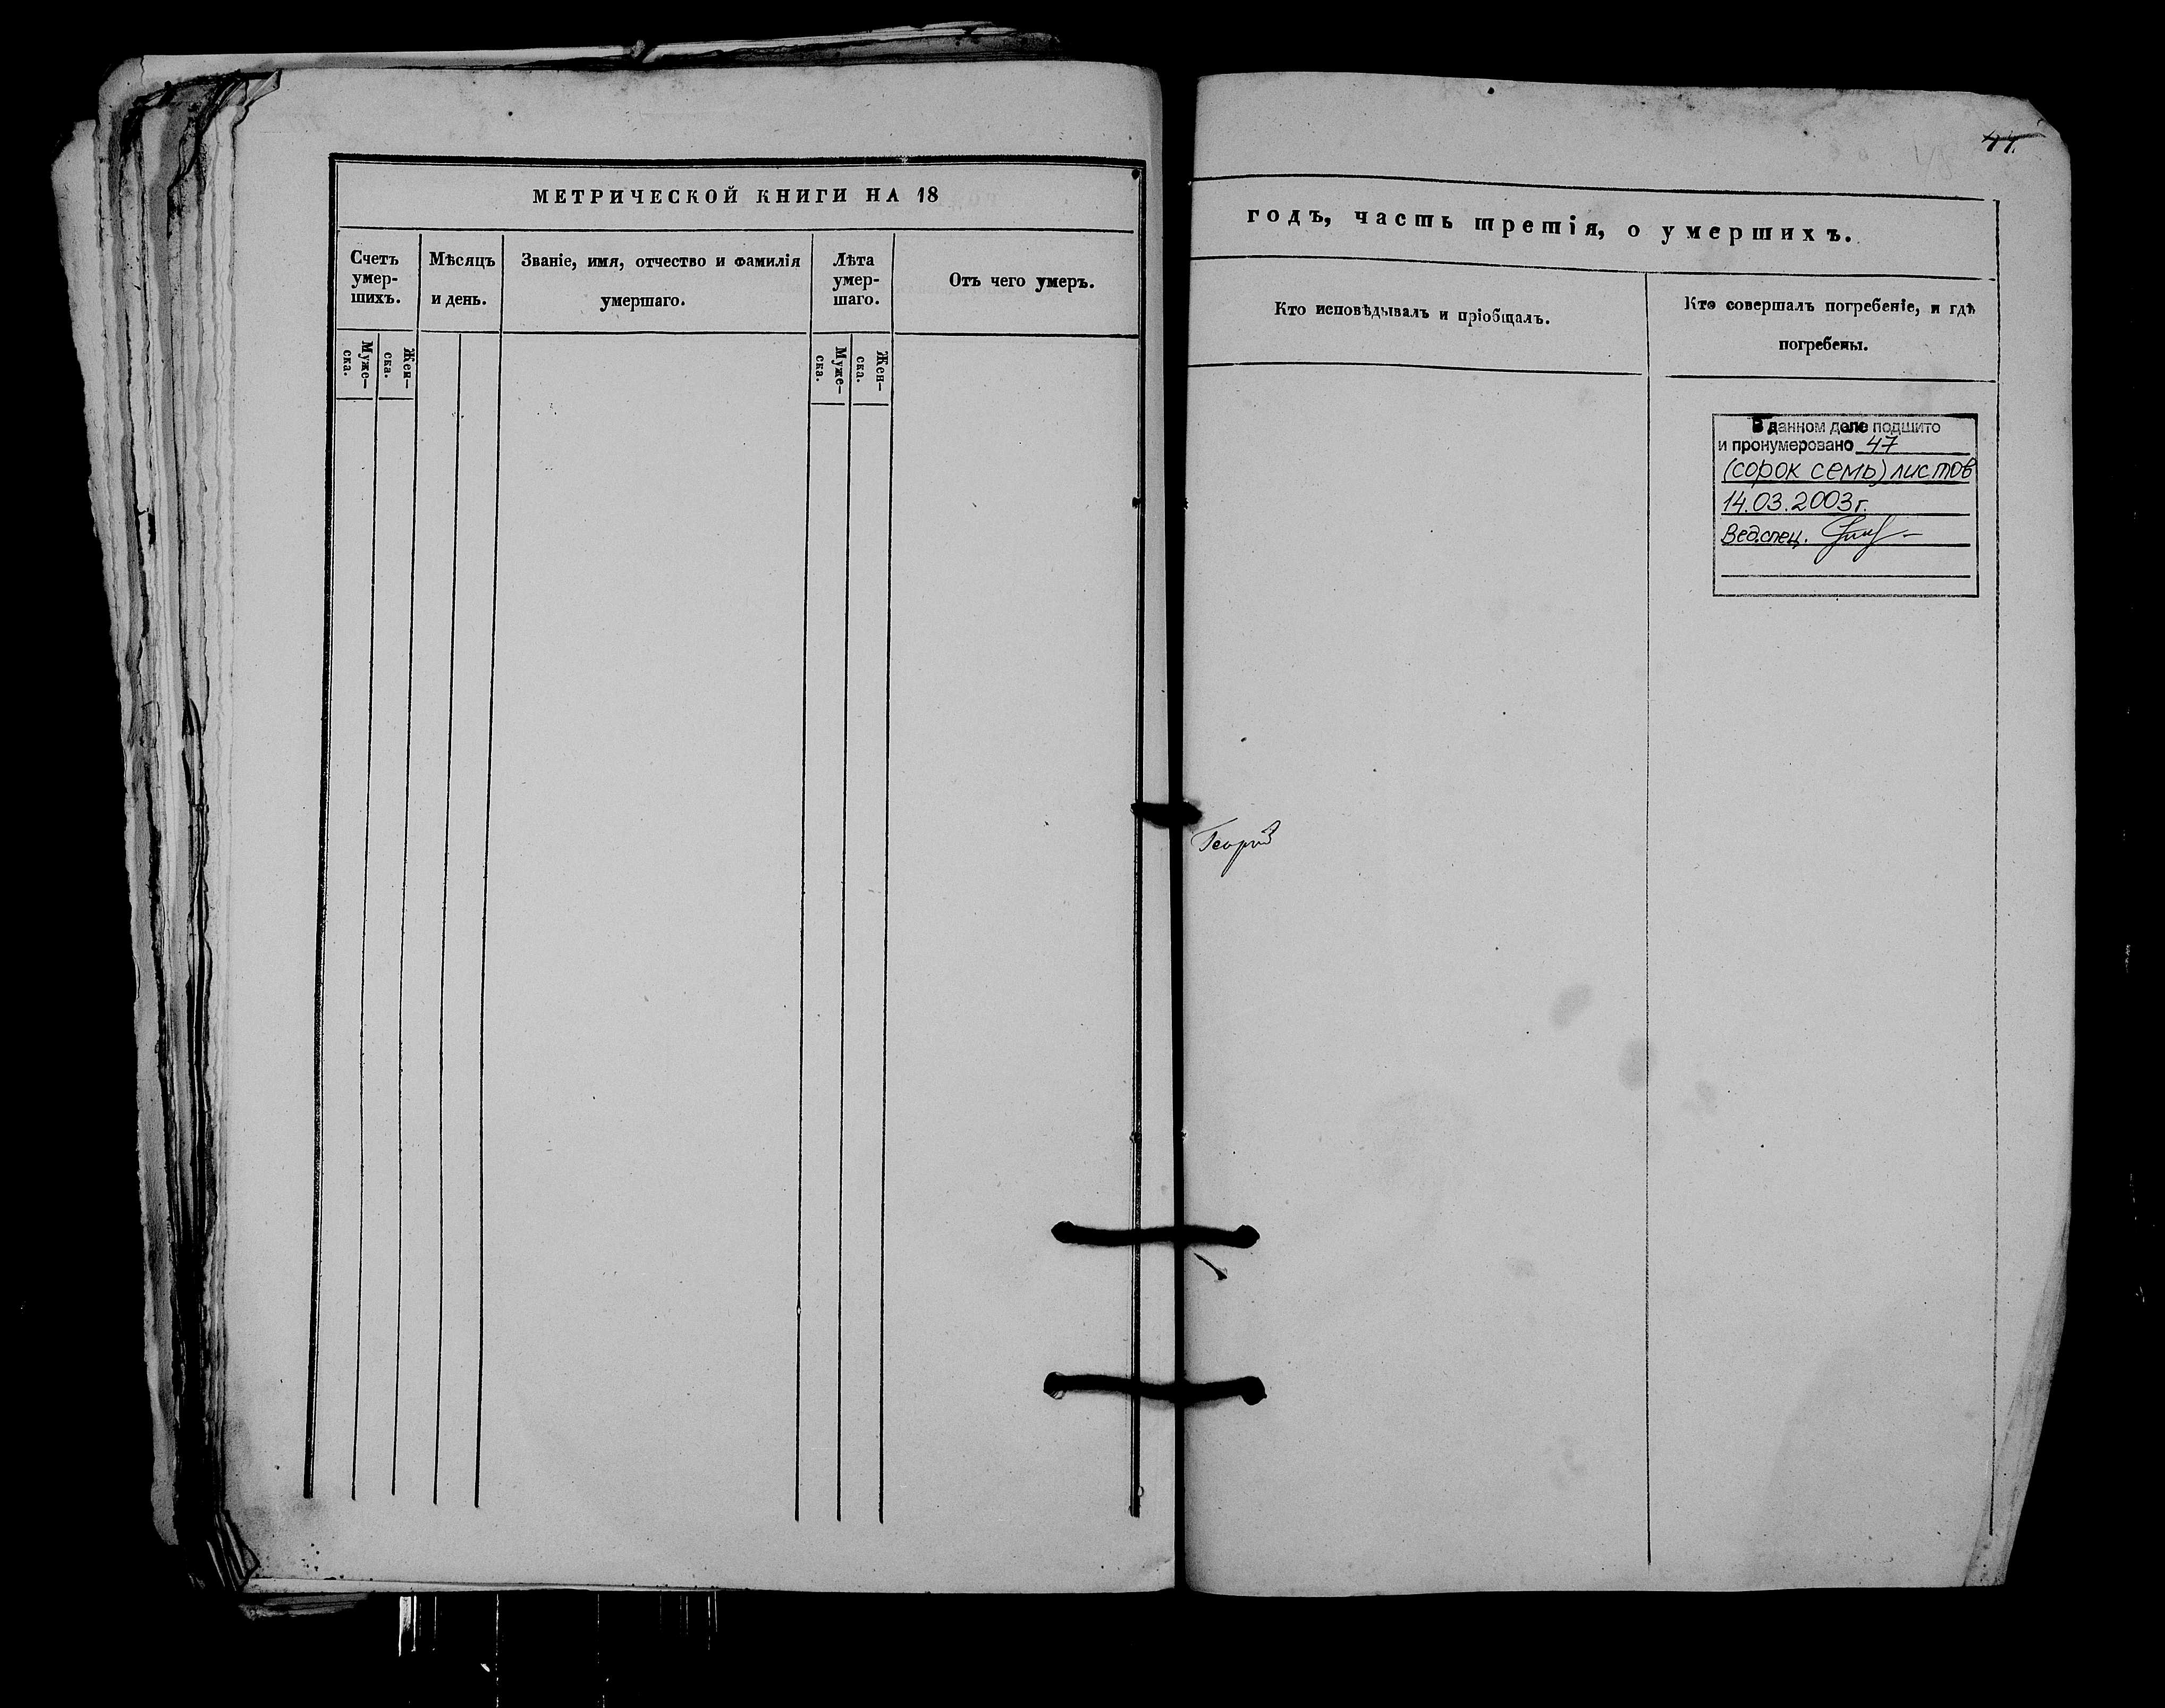 МЕТРИЧЕСКОЙ КНИГИ НА 18
Счетъ умер-шихъ.
Муже-ска.
Жен-ска.
Мѣсяцъ и день.
Званіе, имя, отчество и фамилія умершаго.
Лѣта умер-шаго.
Муже-ска.
Жен-ска.
Отъ чего умеръ.
годъ, часть третія, о умершихъ.
Кто исповѣдывалъ и пріобщалъ.
Кто совершалъ погребеніе, и гдѣ погребены.
В данном деле подшито
и пронумеровано 47
(сорок семь) листов
14.03.2003г.
Вед.спец.
Георгий